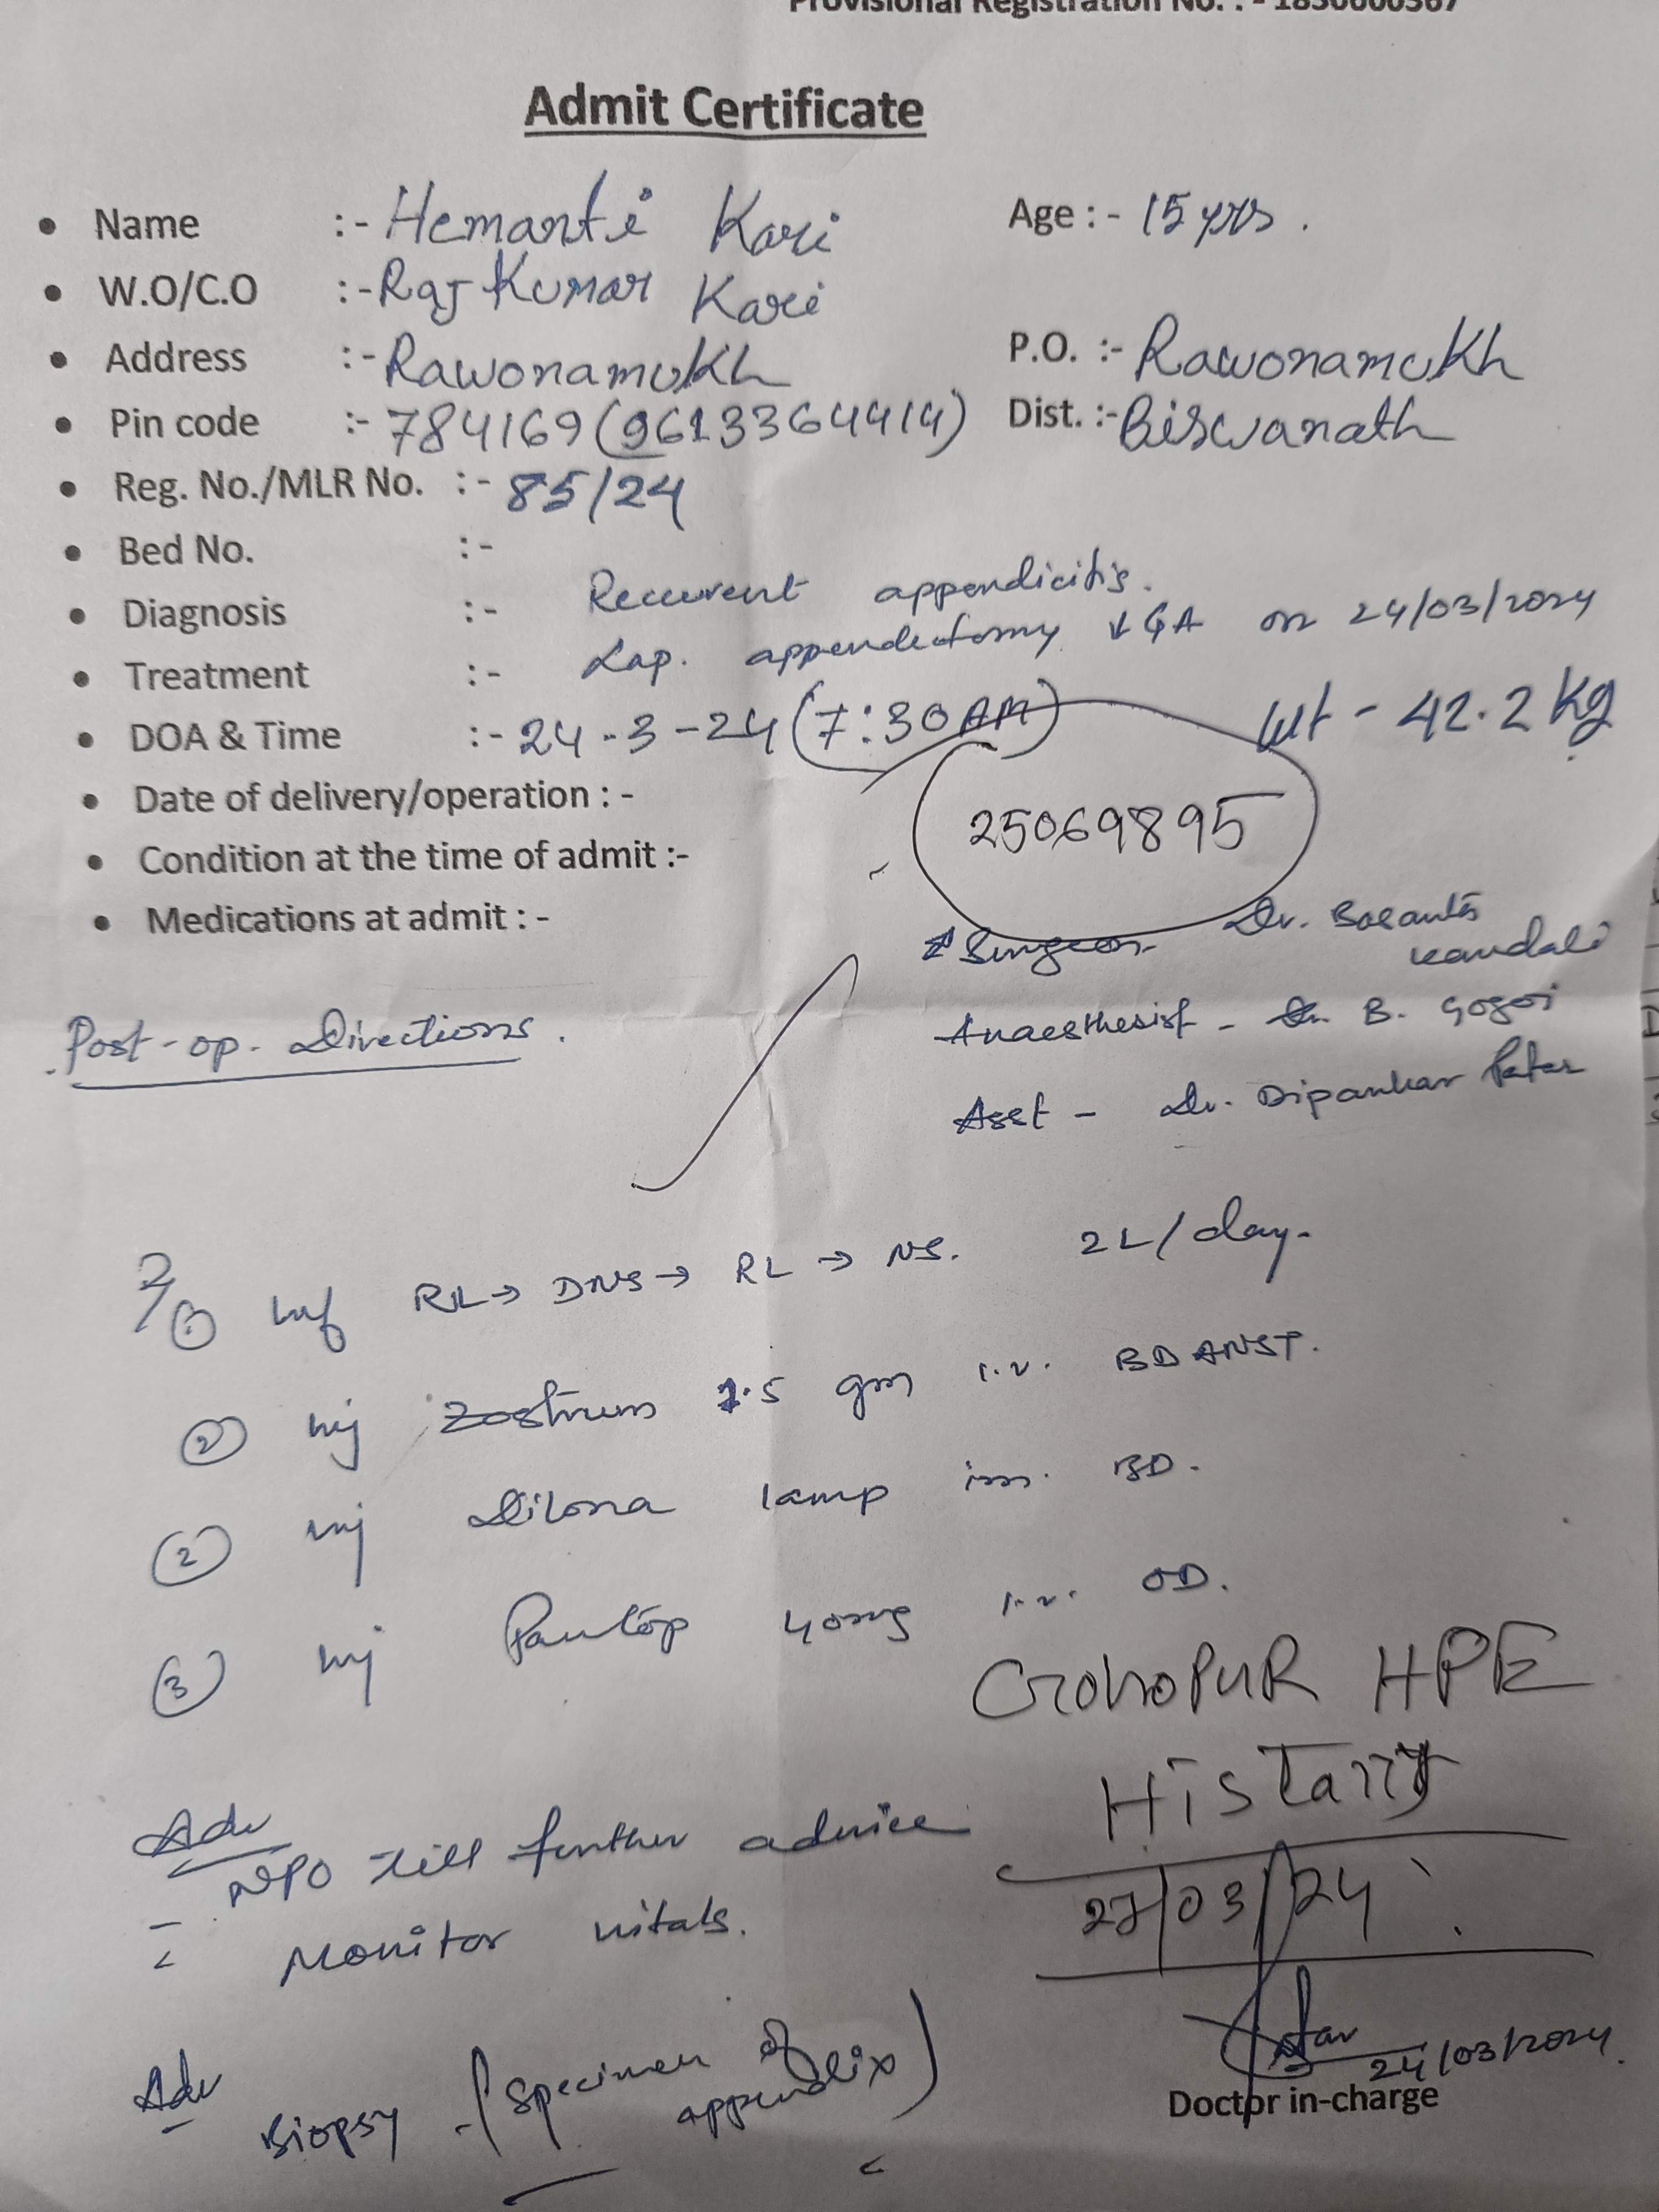 Provisional Registration No. : - 1830600367
Admit Certificate
• Name :- Hemanti Kari Age : - 15 yrs.
• W.O/C.O :- Raj Kumar Kari
• Address :- Rawonamukh P.O. :- Rawonamukh
• Pin code :- 784169 (9613364414) Dist. :- Biswanath
• Reg. No./MLR No. :- 85/24
• Bed No. :-
• Diagnosis :- Recurrent appendicitis.
• Treatment :- Lap. appendectomy ↓ GA on 24/03/2024
• DOA & Time :- 24-3-24 (7:30 AM) Wt - 42.2 kg
• Date of delivery/operation : -
25069895
• Condition at the time of admit :-
• Medications at admit : -
Surgeon - Dr. Basanta
Kandali
Post-op. Directions.
Anaesthesist - Dr. B. Gogoi
Asst - Dr. Dipankar
① Inf RL → DNS → RL → NS. 2L/day.
② inj 1.5 gm i.v. BD ANST.
② inj Dilona 1amp im. BD.
③ inj Pantop 40mg i.v. OD.
HPE
Adv
- NPO till further advice
- Monitor vitals.
27/03/24
24/03/2024.
Doctor in-charge
Adv
Biopsy - (Specimen of
appendix)